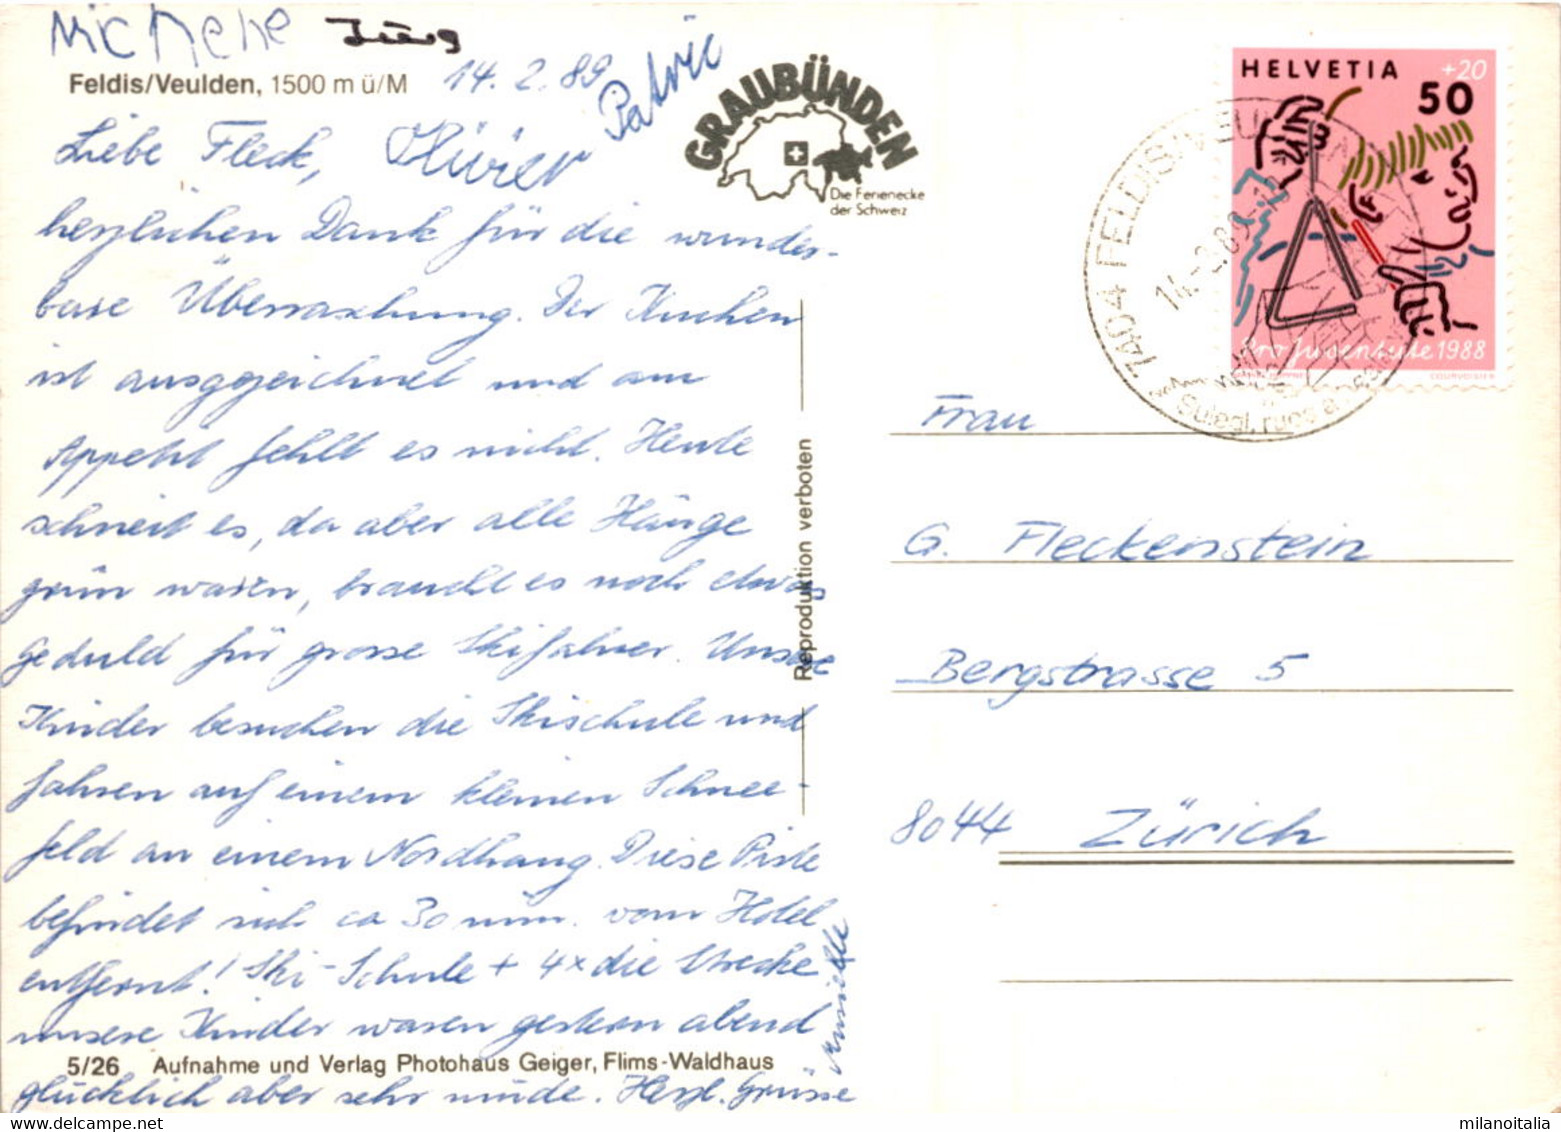 Michele Jürg
Feldis/Veulden, 1500 m ü/M
14. 2. 89
Patric
Oliver
GRAUBÜNDEN
Die Ferienecke
der Schweiz
Liebe Fleck,
herzlichen Dank für die wunder-
bare Überraschung. Der Kuchen
ist ausgezeichnet und am
Appetit fehlt es nicht. Heute
schneit es, da aber alle Hänge
grün waren, braucht es noch etwas
Geduld für grosse Skifahrer. Unsere
Kinder besuchen die Skischule und
fahren auf einem kleinen Schnee-
feld an einem Nordhang. Diese Piste
befindet sich ca 30 min. vom Hotel
entfernt! Ski-Schule + 4x die Strecke
unsere Kinder waren gestern abend
glücklich aber sehr müde. Herzl. Grüsse
5/26 Aufnahme und Verlag Photohaus Geiger, Flims-Waldhaus
Reproduktion verboten
HELVETIA +20
50
Pro Juventute 1988
COURVOISIER
7404 FELDIS/VEULDEN
14.-2.89
Sulegl, ruos a
Frau
G. Fleckenstein
Bergstrasse 5
8044 Zürich
milanoitalia